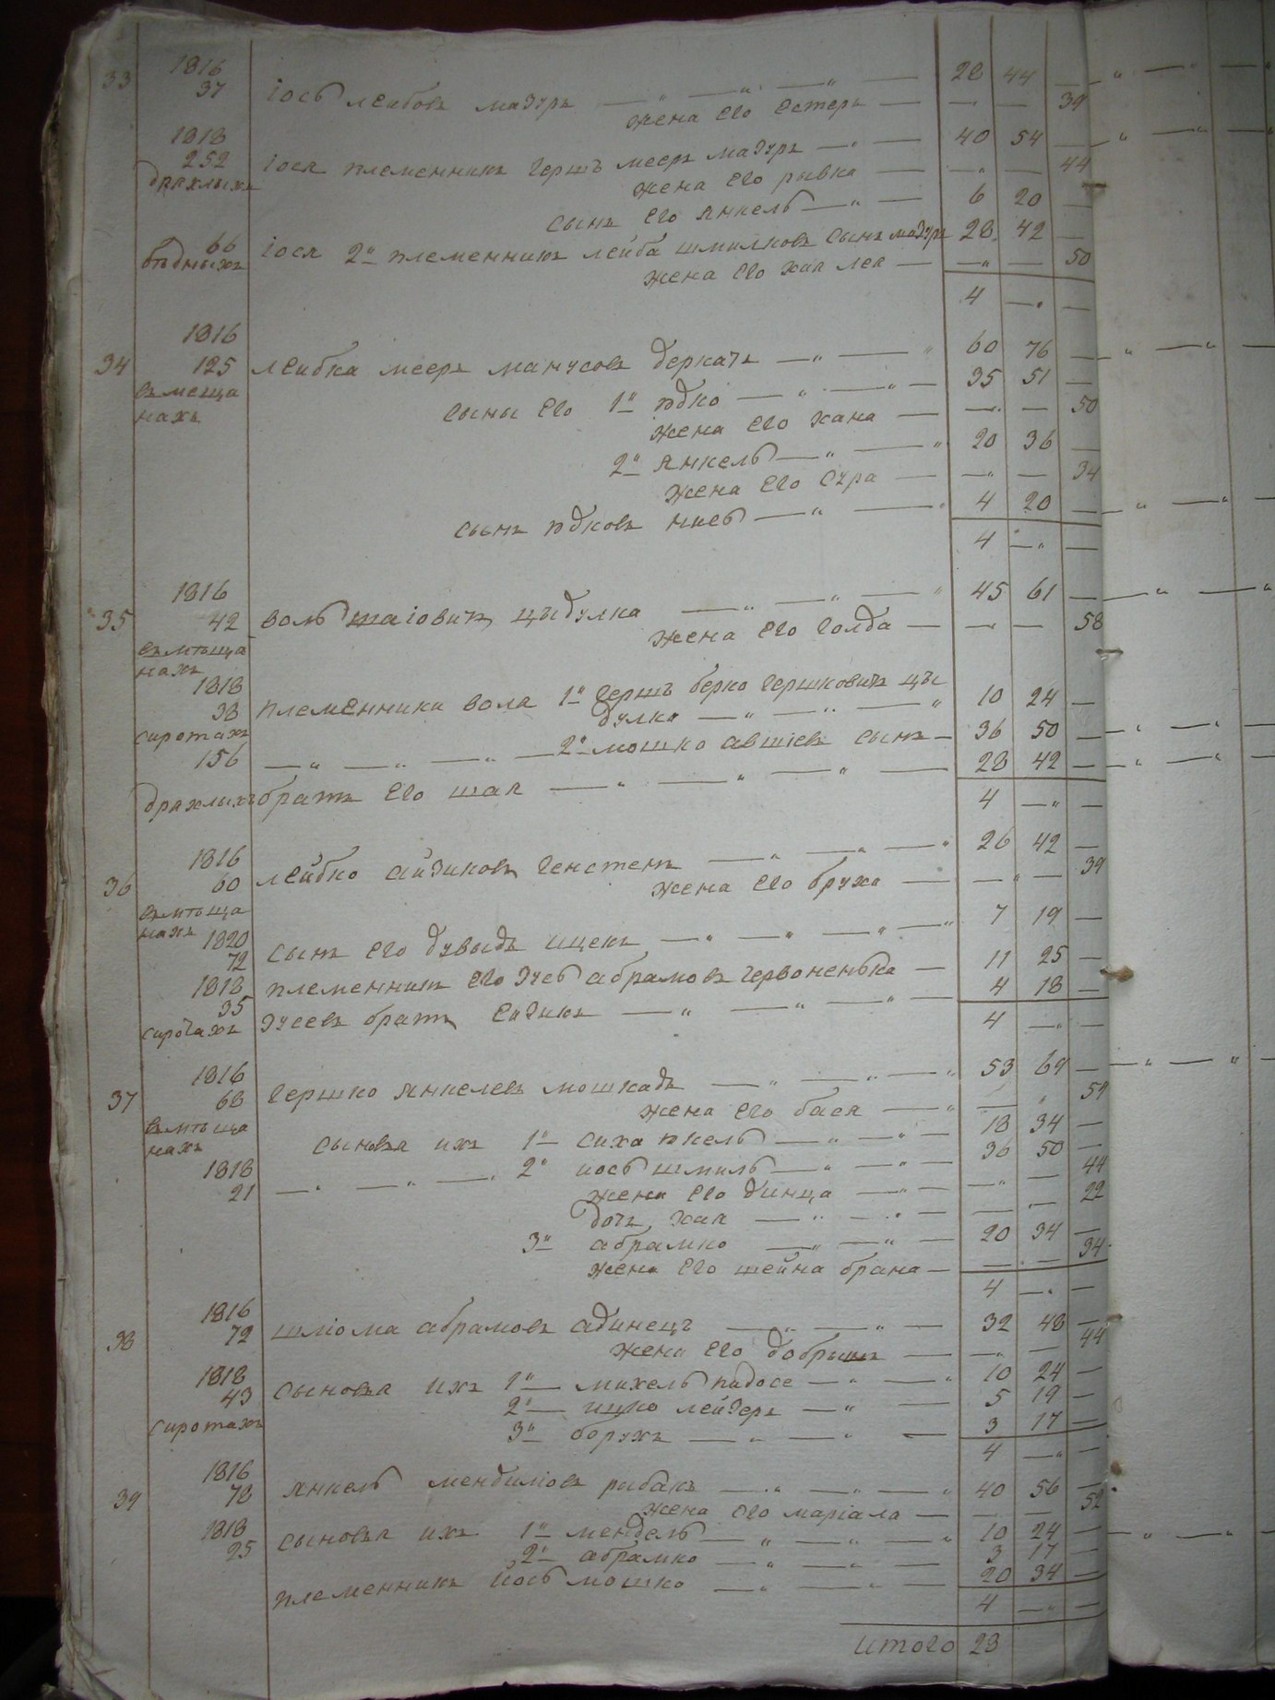 1816
33 37 іось лейбовъ мазуръ — „ — „ — „ — 28 44 —
жена его естеръ — — — 39
1818
252 іося племенникъ гершъ мееръ мазуръ — „ — 40 54 —
дряхлыхъ жена его рывка — — „ — 44
сынъ его янкель — „ — 6 20 —
66 іося 2й племенникъ лейба шмилковъ сынъ мазуръ 28 42 —
бѣдныхъ жена его хая лея — — „ — 50
4 — „ —
1816
34 125 лейбка мееръ манусовъ деркачъ — „ — „ 60 76 —
въ меща
нахъ
сыны его 1й юдко — „ — „ — 35 51 —
жена его хана — — „ — 50
2й янкель — „ — „ 20 36 —
жена его сура — — „ — 34
сынъ юдковъ нись — „ — „ 4 20 —
4 — „ —
1816
35 42 воль шаіовичъ цыдулка — „ — „ — „ 45 61 —
жена его голда — — „ — 58
въ мѣща
нахъ
1818
38 племенники воля 1й гершъ берко гершковичъ цы
дулка — „ — „ — „ 10 24 —
сиротахъ
156 — „ — „ — „ — 2й мошко авшіевъ сынъ — 36 50 —
дряхлыхъ братъ его шая — „ — „ — „ — 28 42 —
4 — „ —
1816
36 60 лейбко айзиковъ генстенъ — „ — „ — „ 26 42 —
жена его бруха — — „ — 39
въ мѣща
нахъ
1820
72 сынъ его дувыдъ ицекъ — „ — „ — „ — „ 7 19 —
1818
35 племенникъ его зусь абрамовъ червоненька — 11 25 —
сиротахъ зусевъ братъ ейзикъ — „ — „ — „ — 4 18 —
4 — „ —
1816
37 68 гершко янкелевъ мошкадъ — „ — „ — „ 53 69 —
жена его бася — „ — „ 59
въ мѣща
нахъ
сыновья ихъ 1й сиха юкель — „ — „ — 18 34 —
1818
21 — „ — „ — „ 2й иось шмиль — „ — „ — 36 50 —
жена его динца — „ — — „ — 44
дочъ хая — „ — „ — — „ — 22
3й абрамко — „ — „ — 20 34 —
жена его шейна брана — — „ — 34
4 — „ —
1816
38 72 шліома абрамовъ адинецъ — „ — „ — 32 48 —
жена его добрышъ — — „ — 44
1818
43 сыновья ихъ 1й — михель падосе — „ — „ 10 24 —
2й — ицко лейзеръ — „ — 5 19 —
сиротахъ
3й борухъ — „ — „ — 3 17 —
4 — „ —
1816
39 78 янкель мендиліовъ рыбакъ — „ — „ — „ 40 56 —
жена его маріаля — — — — 52
1818
25 сыновья ихъ 1й мендель — „ — „ — „ 10 24 —
2й абрамко — „ — „ — 3 17 —
племенникъ іось мошко — „ — „ — 20 34 —
4 — „ —
итого 28